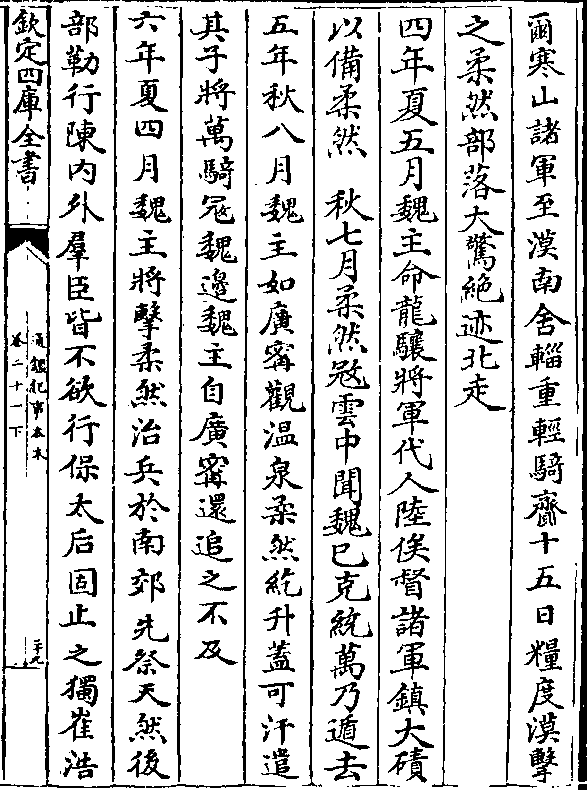 爾寒山諸軍至漠南舍輜重輕騎齎十五日糧度漠擊
之柔然部落大驚絶迹北走
四年夏五月魏主命龍驤將軍代人陸俟督諸軍鎮大磧
以備柔然　秋七月柔然冦雲中聞魏已克統萬乃遁去
五年秋八月魏主如廣甯觀温泉柔然紇升蓋可汗遣
其子將萬騎冦魏邊魏主自廣甯還追之不及
六年夏四月魏主將擊柔然治兵於南郊先祭天然後
部勒行陳内外羣臣皆不欲行保太后固止之獨崔浩
欽定四庫全書
通鑑紀事本末
卷二十一下
二十九